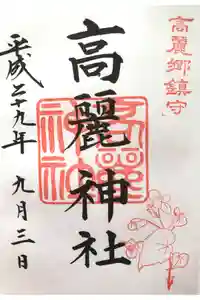 高麗郷鎮守
高麗神社
平成二十九年 九月三日